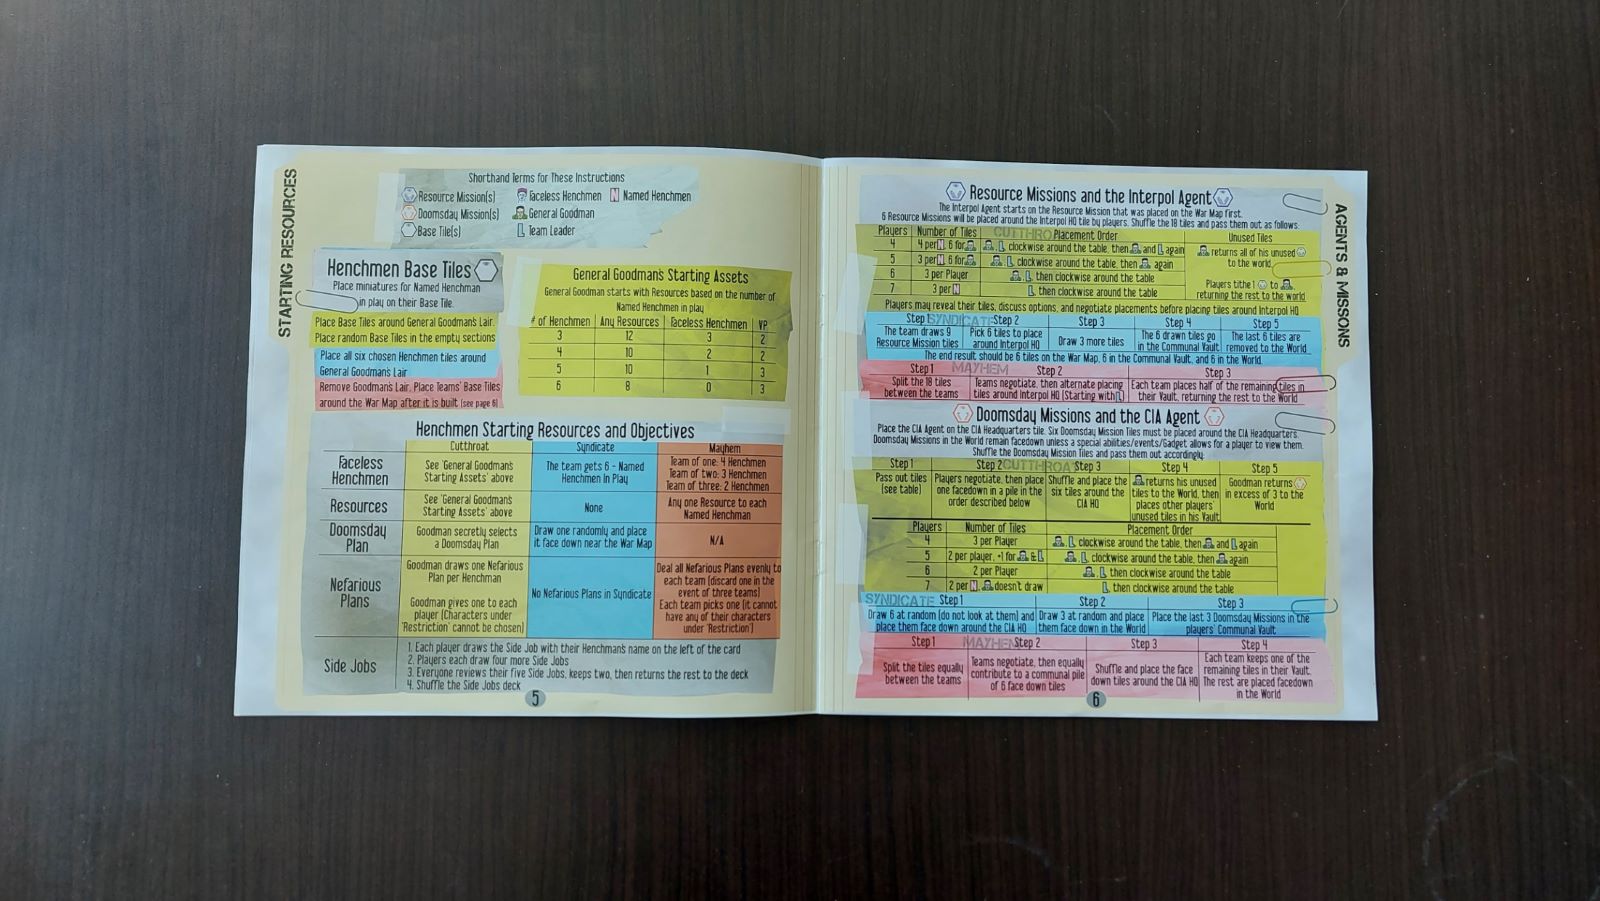 STARTING RESOURCES
Shorthand Terms for These Instructions
Resource Mission(s) Faceless Henchmen N Named Henchmen
Doomsday Mission(s) General Goodman
Base Tile(s) L Team Leader
Henchmen Base Tiles
Place miniatures for Named Henchman
in play on their Base Tile.
Place Base Tiles around General Goodman's Lair.
Place random Base Tiles in the empty sections
Place all six chosen Henchmen tiles around
General Goodman's Lair
Remove Goodman's Lair, Place Teams' Base Tiles
around the War Map after it is built (see page 6)
General Goodman's Starting Assets
General Goodman starts with Resources based on the number of
Named Henchmen in play
# of Henchmen Any Resources Faceless Henchmen VP
3 12 3 2
4 10 2 2
5 10 1 3
6 8 0 3
Henchmen Starting Resources and Objectives
Cutthroat Syndicate Mayhem
Faceless
Henchmen
See 'General Goodman's
Starting Assets' above
The team gets 6 - Named
Henchmen In Play
Team of one: 4 Henchmen
Team of two: 3 Henchmen
Team of three: 2 Henchmen
Resources
See 'General Goodman's
Starting Assets' above
None
Any one Resource to each
Named Henchman
Doomsday
Plan
Goodman secretly selects
a Doomsday Plan
Draw one randomly and place
it face down near the War Map
N/A
Nefarious
Plans
Goodman draws one Nefarious
Plan per Henchman
Goodman gives one to each
player (Characters under
'Restriction' cannot be chosen)
No Nefarious Plans in Syndicate
Deal all Nefarious Plans evenly to
each team (discard one in the
event of three teams)
Each team picks one (it cannot
have any of their characters
under 'Restriction')
Side Jobs
1. Each player draws the Side Job with their Henchman's name on the left of the card
2. Players each draw four more Side Jobs
3. Everyone reviews their five Side Jobs, keeps two, then returns the rest to the deck
4. Shuffle the Side Jobs deck
5
AGENTS & MISSIONS
Resource Missions and the Interpol Agent
The Interpol Agent starts on the Resource Mission that was placed on the War Map first.
6 Resource Missions will be placed around the Interpol HQ tile by players. Shuffle the 18 tiles and pass them out as follows:
CUTTHROAT
Players Number of Tiles Placement Order Unused Tiles
4 4 per N 6 for , L clockwise around the table, then and L again
5 3 per N 6 for , L clockwise around the table, then again
6 3 per Player , L then clockwise around the table
7 3 per N L then clockwise around the table
returns all of his unused
to the world
Players tithe 1 to
returning the rest to the world
Players may reveal their tiles, discuss options, and negotiate placements before placing tiles around Interpol HQ
SYNDICATE
Step 1 Step 2 Step 3 Step 4 Step 5
The team draws 9
Resource Mission tiles
Pick 6 tiles to place
around Interpol HQ
Draw 3 more tiles
The 6 drawn tiles go
in the Communal Vault
The last 6 tiles are
removed to the World
The end result should be 6 tiles on the War Map, 6 in the Communal Vault, and 6 in the World
MAYHEM
Step 1 Step 2 Step 3
Split the 18 tiles
between the teams
Teams negotiate, then alternate placing
tiles around Interpol HQ (Starting with L)
Each team places half of the remaining tiles in
their Vault, returning the rest to the World
Doomsday Missions and the CIA Agent
Place the CIA Agent on the CIA Headquarters tile. Six Doomsday Mission Tiles must be placed around the CIA Headquarters.
Doomsday Missions in the World remain facedown unless a special abilities/events/Gadget allows for a player to view them.
Shuffle the Doomsday Mission Tiles and pass them out accordingly:
CUTTHROAT
Step 1 Step 2 Step 3 Step 4 Step 5
Pass out tiles
(see table)
Players negotiate, then place
one facedown in a pile in the
order described below
Shuffle and place the
six tiles around the
CIA HQ
returns his unused
tiles to the World, then
places other players'
unused tiles in his Vault
Goodman returns
in excess of 3 to the
World
Players Number of Tiles Placement Order
4 3 per Player , L clockwise around the table, then and L again
5 2 per player, +1 for & L , L clockwise around the table, then again
6 2 per Player , L then clockwise around the table
7 2 per N, doesn't draw L then clockwise around the table
SYNDICATE Step 1 Step 2 Step 3
Draw 6 at random (do not look at them) and
place them face down around the CIA HQ
Draw 3 at random and place
them face down in the World
Place the last 3 Doomsday Missions in the
players' Communal Vault
MAYHEM
Step 1 Step 2 Step 3 Step 4
Split the tiles equally
between the teams
Teams negotiate, then equally
contribute to a communal pile
of 6 face down tiles
Shuffle and place the face
down tiles around the CIA HQ
Each team keeps one of the
remaining tiles in their Vault.
The rest are placed facedown
in the World
6